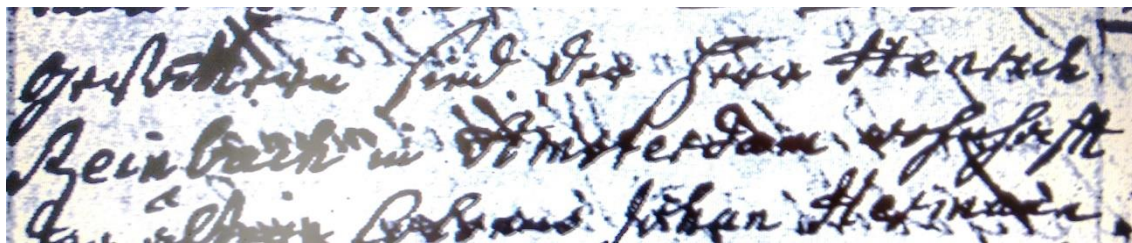 Gevattern sind der Herr Henrich
Reinbach in Amsterdam wohnhaft
Johan Herman